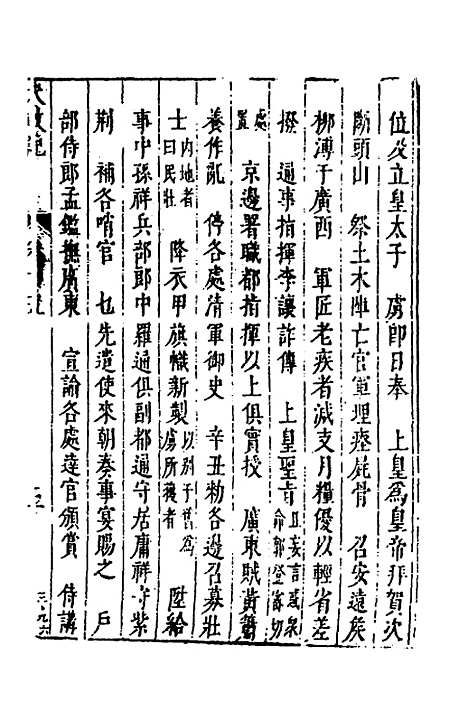 位及立皇太子　虜即日奉　上皇為皇帝拜賀次
斷頭山　祭土木陣亡官軍埋瘞屍骨　召安遠侯
柳溥于廣西　軍匠老疾者減支月糧優以輕省差
撥　逼事指揮李讓詐傳　上皇聖旨且妄言惑眾命郭登密切
處置　京邊署職都指揮以上俱實授　廣東賊黃蕭
養作亂　停各處清軍御史　辛丑勑各邊召募壯
士內地者曰民壯　降衣甲旗幟新製以別于舊為虜所獲者　陞給
事中孫祥兵部郎中羅通俱副都通守居庸祥守紫
荆　補各哨官　乜先遣使來朝奏事宴賜之　戶
部侍郎孟鑑撫廣東　宣諭各處達官頒賞　侍講